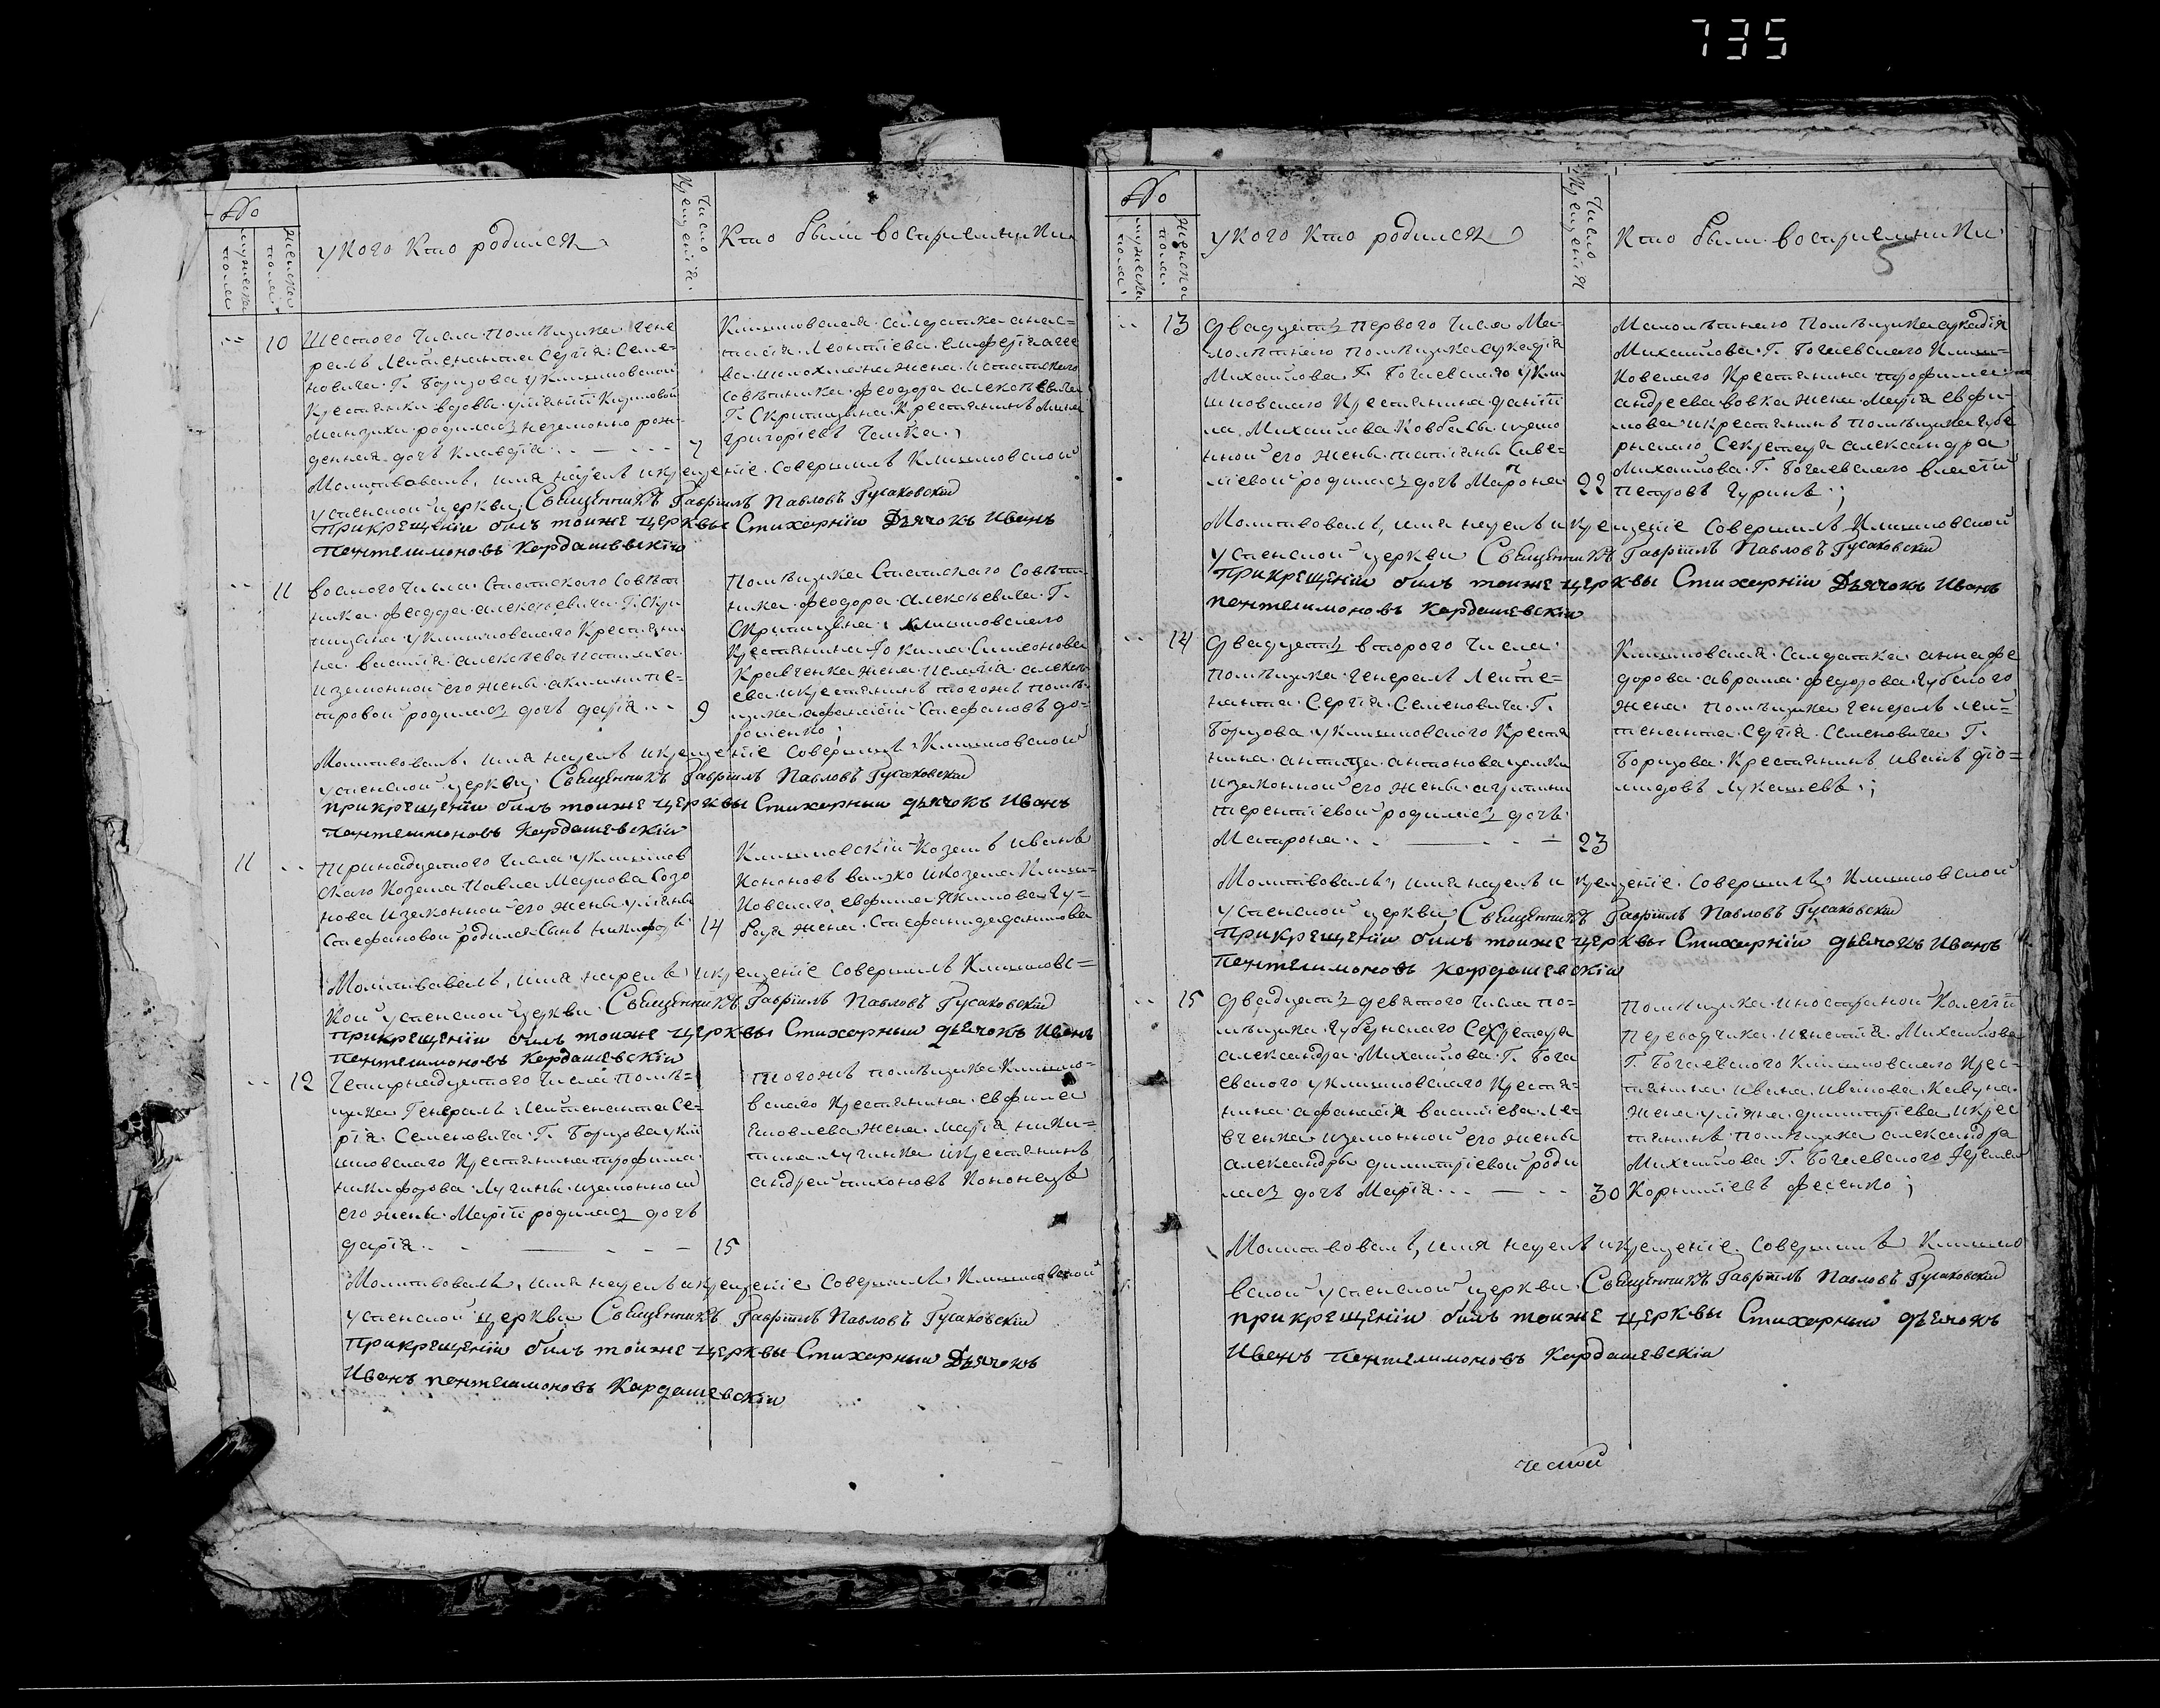 735
№
мужеска пола
женска пола
Укого Кто родился
Число Крещенія
Кто были восприемники
10
Шестого Числа помѣщика Гене
ралъ Лейтенанта Сергія Семе-
новича Г. Борзова укишковской
Крестянки вдовы улиянӥ
родилась незаконно рож-
денная дочь Клавдія
7
салдатка анас-
тасія Леонтіева
жена истатскаго
совѣтника феодора алексѣевича
Г. Скрипицына Крестянинъ
григоріевъ Чайка
Молитвовалъ, имя нарелъ икрещеніе совершилъ
успенской церкви Священникъ Гавріилъ Павловъ Гусаковскій
прикрещеніи билъ тоиже церквы Стихарніи Дьячокъ Иванъ
пантелимоновъ Кардашевскіи
11
восмого числа Статскаго Совѣт
ника феодора алексѣевича Г. Скри
пицына Крестяни
на василія алексѣева
изаконной его жены акилины пе-
тровой родилась дочь дарія
9
Помѣщика Статскаго Совѣт-
ника феодора алексѣевича Г.
Скрипицына
Крестянина фокима Симеонова
Кравченка жена Пелагія алексѣ
ева икрестянинъ тогожъ помѣ-
щика афанасій Стефановъ до-
рошенко;
Молитвовалъ, имя нарелъ икрещеніе совершилъ
успенской церкви Священникъ Гавріилъ Павловъ Гусаковскій
прикрещеніи билъ тоиже церквы Стихарныи дьячокъ Иванъ
пантелимоновъ Кардашевскіи
11
Тринадцатого Числа
скаго Козака Павла Маркова Созо
нова изаконной его жены улияны
Стефановой родился Сынъ никифоръ
14
Козакъ иванъ
Кононовъ икозака
евфима Якимова Гу-
баря жена Стефанида данилова
Молитвовалъ, имя нарелъ икрещеніе совершилъ
кой успенской церкви Священникъ Гавріилъ Павловъ Гусаковскій
прикрещеніи билъ тоиже церквы Стихарныи дьячокъ Иванъ
пантелимоновъ Кардашевскіи
12
Четырнадцатого Числа помѣ-
щика Генералъ Лейтенанта Се-
ргія Семеновича Г. Борзова
Крестянина трофима
никифорова Лугины изаконной
его жены Маріи родилась дочь
дарія
15
тогожъ помѣщика
вскаго Крестянина евфима
Яковлева жена Марія ники-
тина Лучинка икрестянинъ
андрей тихоновъ Кононецъ
Молитвовалъ, имя нарелъ икрещеніе совершилъ
успенской церкви Священникъ Гавріилъ Павловъ Гусаковскій
прикрещеніи билъ тоиже церквы Стихарныи Дьячокъ
Иванъ пантелимоновъ Кардашевскіи
№
мужеска пола
женска пола
Укого Кто родился
Число Крещенія
Кто были восприемники
13
двадцать первого Числа Ма-
лолѣтнаго помѣщика аркадія
Михайлова Г. Богаевскаго
Крестянина даніи
ла Михайлова Ковбасы изако
нной его жены татіяны Саве-
ліевой родилась дочь Матрона
22
Малолѣтнаго помѣщика аркадія
Михайлова Г. Богаевскаго
Крестянина трофима
андреева вовка жена Марія евфи-
мова икрестянинъ помѣщика губе
рнскаго Секретаря александра
Михайлова Г. Богаевскаго власій
петровъ гуринъ;
Молитвовалъ, имя нарелъ икрещеніе совершилъ
успенской церкви Священникъ Гавріилъ Павловъ Гусаковскій
прикрещеніи билъ тоиже церквы Стихарніи Дьячокъ Иванъ
пантелимоновъ Кардашевскіи
14
двадцать второго Числа
помѣщика Генералъ Лейте-
нанта Сергія Семеновича Г.
Борзова Крестя
нина антипа антонова
изаконной его жены агрипины
терентіевой родилась дочь
Матрона
23
салдатка анна фе
дорова аврама федорова губского
жена помѣщика генералъ лей-
тенанта Сергія Семеновича Г.
Борзова Крестянинъ иванъ діо-
мидовъ лукашевъ;
Молитвовалъ, имя нарелъ икрещеніе совершилъ
успенской церкви Священникъ Гавріилъ Павловъ Гусаковскій
прикрещеніи билъ тоиже церквы Стихарніи дьячокъ Иванъ
пантелимоновъ кардашевскіи
15
двадцать девятого Числа по-
мѣщика губернскаго Секретаря
александра Михайлова Г. Бога
евского Крестя-
нина афанасія василіева Ле-
вченка изаконной его жены
александры димитріевой роди
лась дочь Марія
30
помѣщика иностраной Колегіи
переводчика игнатія Михайлова
Г. Богаевского Крес-
тянина ивана иванова Кавуна
жена уліяна димитріева икрес
тянинъ помѣщика александра
Михайлова Г. Богаевского
Корниліевъ фесенко;
Молитвовалъ, имя нарелъ икрещеніе совершилъ
вской успенской церкви Священникъ Гавріилъ Павловъ Гусаковскій
прикрещеніи билъ тоиже церквы Стихарныи дьячокъ
Иванъ пантелимоновъ Кардашевскіи